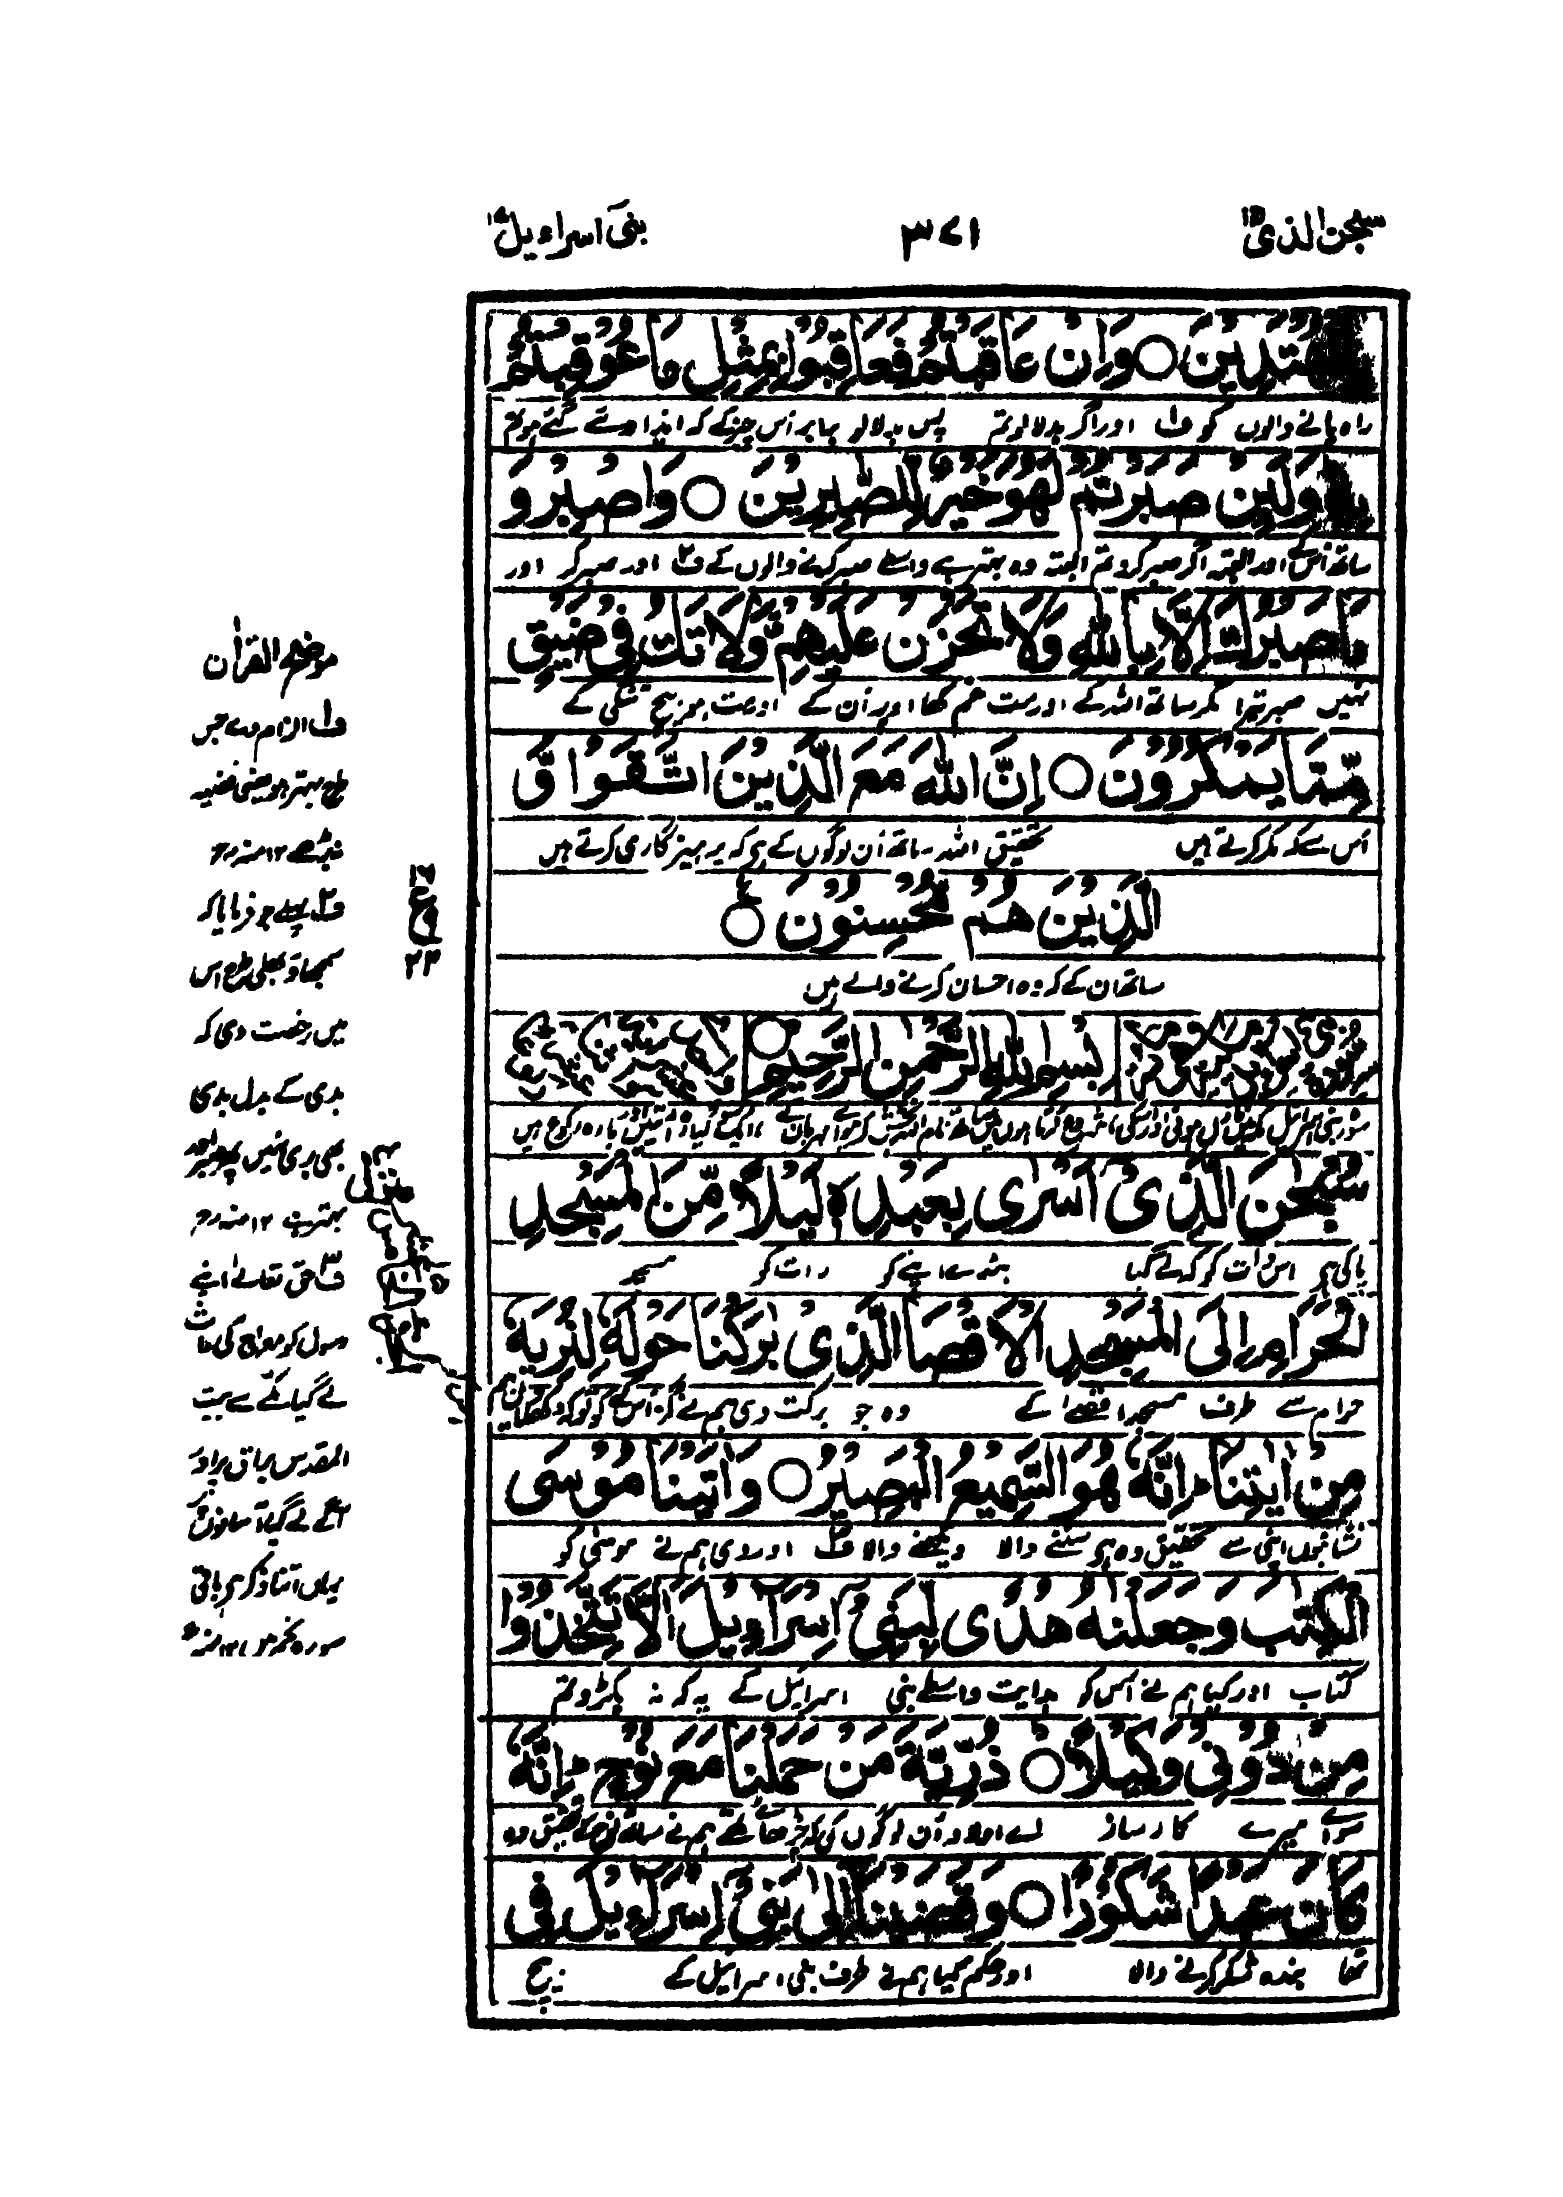 سبحن الذی ۱۵
۳۷۱
بنی اسراءیل ۱۷
بِالْمُهْتَدِیْنَ ○ وَاِنْ عَاقَبْتُمْ فَعَاقِبُوْا بِمِثْلِ مَا عُوْقِبْتُمْ
راہ پانے والوں کو ف۱ اور اگر بدلا لو تم پس بدلا لو برابر اُس چیز کے کہ ایذا دئے گئے ہو تم
بِهٖ وَلَىِٕنْ صَبَرْتُمْ لَهُوَ خَیْرٌ لِّلصّٰبِرِیْنَ ○ وَاصْبِرْ وَ
ساتھ اُس کے اور البتہ اگر صبر کرو تم البتہ وہ بہتر ہے واسطے صبر کرنے والوں کے ف۲ اور صبر کر اور
مَا صَبْرُكَ اِلَّا بِاللّٰهِ وَلَا تَحْزَنْ عَلَیْهِمْ وَلَا تَكُ فِیْ ضَیْقٍ
نہیں صبر تیرا مگر ساتھ اللہ کے اور مت غم کھا اوپر اُن کے اور مت ہو بیچ تنگی کے
مِّمَّا یَمْكُرُوْنَ ○ اِنَّ اللّٰهَ مَعَ الَّذِیْنَ اتَّقَوْا وَّ
اُس سے کہ مکر کرتے ہیں تحقیق اللہ ساتھ اُن لوگوں کے ہے کہ پرہیزگاری کرتے ہیں
الَّذِیْنَ هُمْ مُّحْسِنُوْنَ ○
ساتھ ان کے کہ وہ احسان کرنے والے ہیں
بِسْمِ اللّٰهِ الرَّحْمٰنِ الرَّحِیْمِ ○
سُبْحٰنَ الَّذِیْۤ اَسْرٰى بِعَبْدِهٖ لَیْلًا مِّنَ الْمَسْجِدِ
پاکی ہے اس ذات کو کہ لے گیا بندے اپنے کو رات کو مسجد
الْحَرَامِ اِلَى الْمَسْجِدِ الْاَقْصَا الَّذِیْ بٰرَكْنَا حَوْلَهٗ لِنُرِیَهٗ
حرام سے طرف مسجد اقصےٰ کے وہ جو برکت دی ہم نے گرد اس کے تو کہ دکھلاویں ہم
مِنْ اٰیٰتِنَا ؕ اِنَّهٗ هُوَ السَّمِیْعُ الْبَصِیْرُ ○ وَاٰتَیْنَا مُوْسَى
نشانیوں اپنی سے تحقیق وہ ہے سننے والا دیکھنے والا ف۳ اور دی ہم نے موسیٰ کو
الْكِتٰبَ وَجَعَلْنٰهُ هُدًى لِّبَنِیْۤ اِسْرَآءِیْلَ اَلَّا تَتَّخِذُوْا
کتاب اور کیا ہم نے اُس کو ہدایت واسطے بنی اسرائیل کے یہ کہ نہ پکڑو تم
مِنْ دُوْنِیْ وَكِیْلًا ○ ذُرِّیَّةَ مَنْ حَمَلْنَا مَعَ نُوْحٍ ؕ اِنَّهٗ
سوائے میرے کارساز اے اولاد اُن لوگوں کی کہ چڑھا لئے تھے ہم نے ساتھ نوح کے تحقیق وہ
كَانَ عَبْدًا شَكُوْرًا ○ وَقَضَیْنَاۤ اِلٰى بَنِیْۤ اِسْرَآءِیْلَ فِی
تھا بندہ شکر کرنے والا اور حکم کیا ہم نے طرف بنی اسرائیل کے بیچ
موضح القرآن
ف۱ الزام دے جس
طرح بہتر ہو یعنی قضیہ
نہ بڑھے ۱۲ منہ رح
ف۲ پہلے جو فرمایا کہ
سمجھاؤ بھلی طرح اس
میں رخصت دی کہ
بدی کے بدل بدی
بھی بری نہیں پر صبر اور
بہتر ہے ۱۲ منہ رح
ف۳ حق تعالےٰ اپنے
رسول کو معراج کی رات
لے گیا مکّے سے بیت
المقدس براق پر اور
آگے لے گیا آسانوں
یہاں اتنا ذکر ہے باقی
سورہ نجم میں ۱۲ منہ رح
۱۶
ع
۲۲